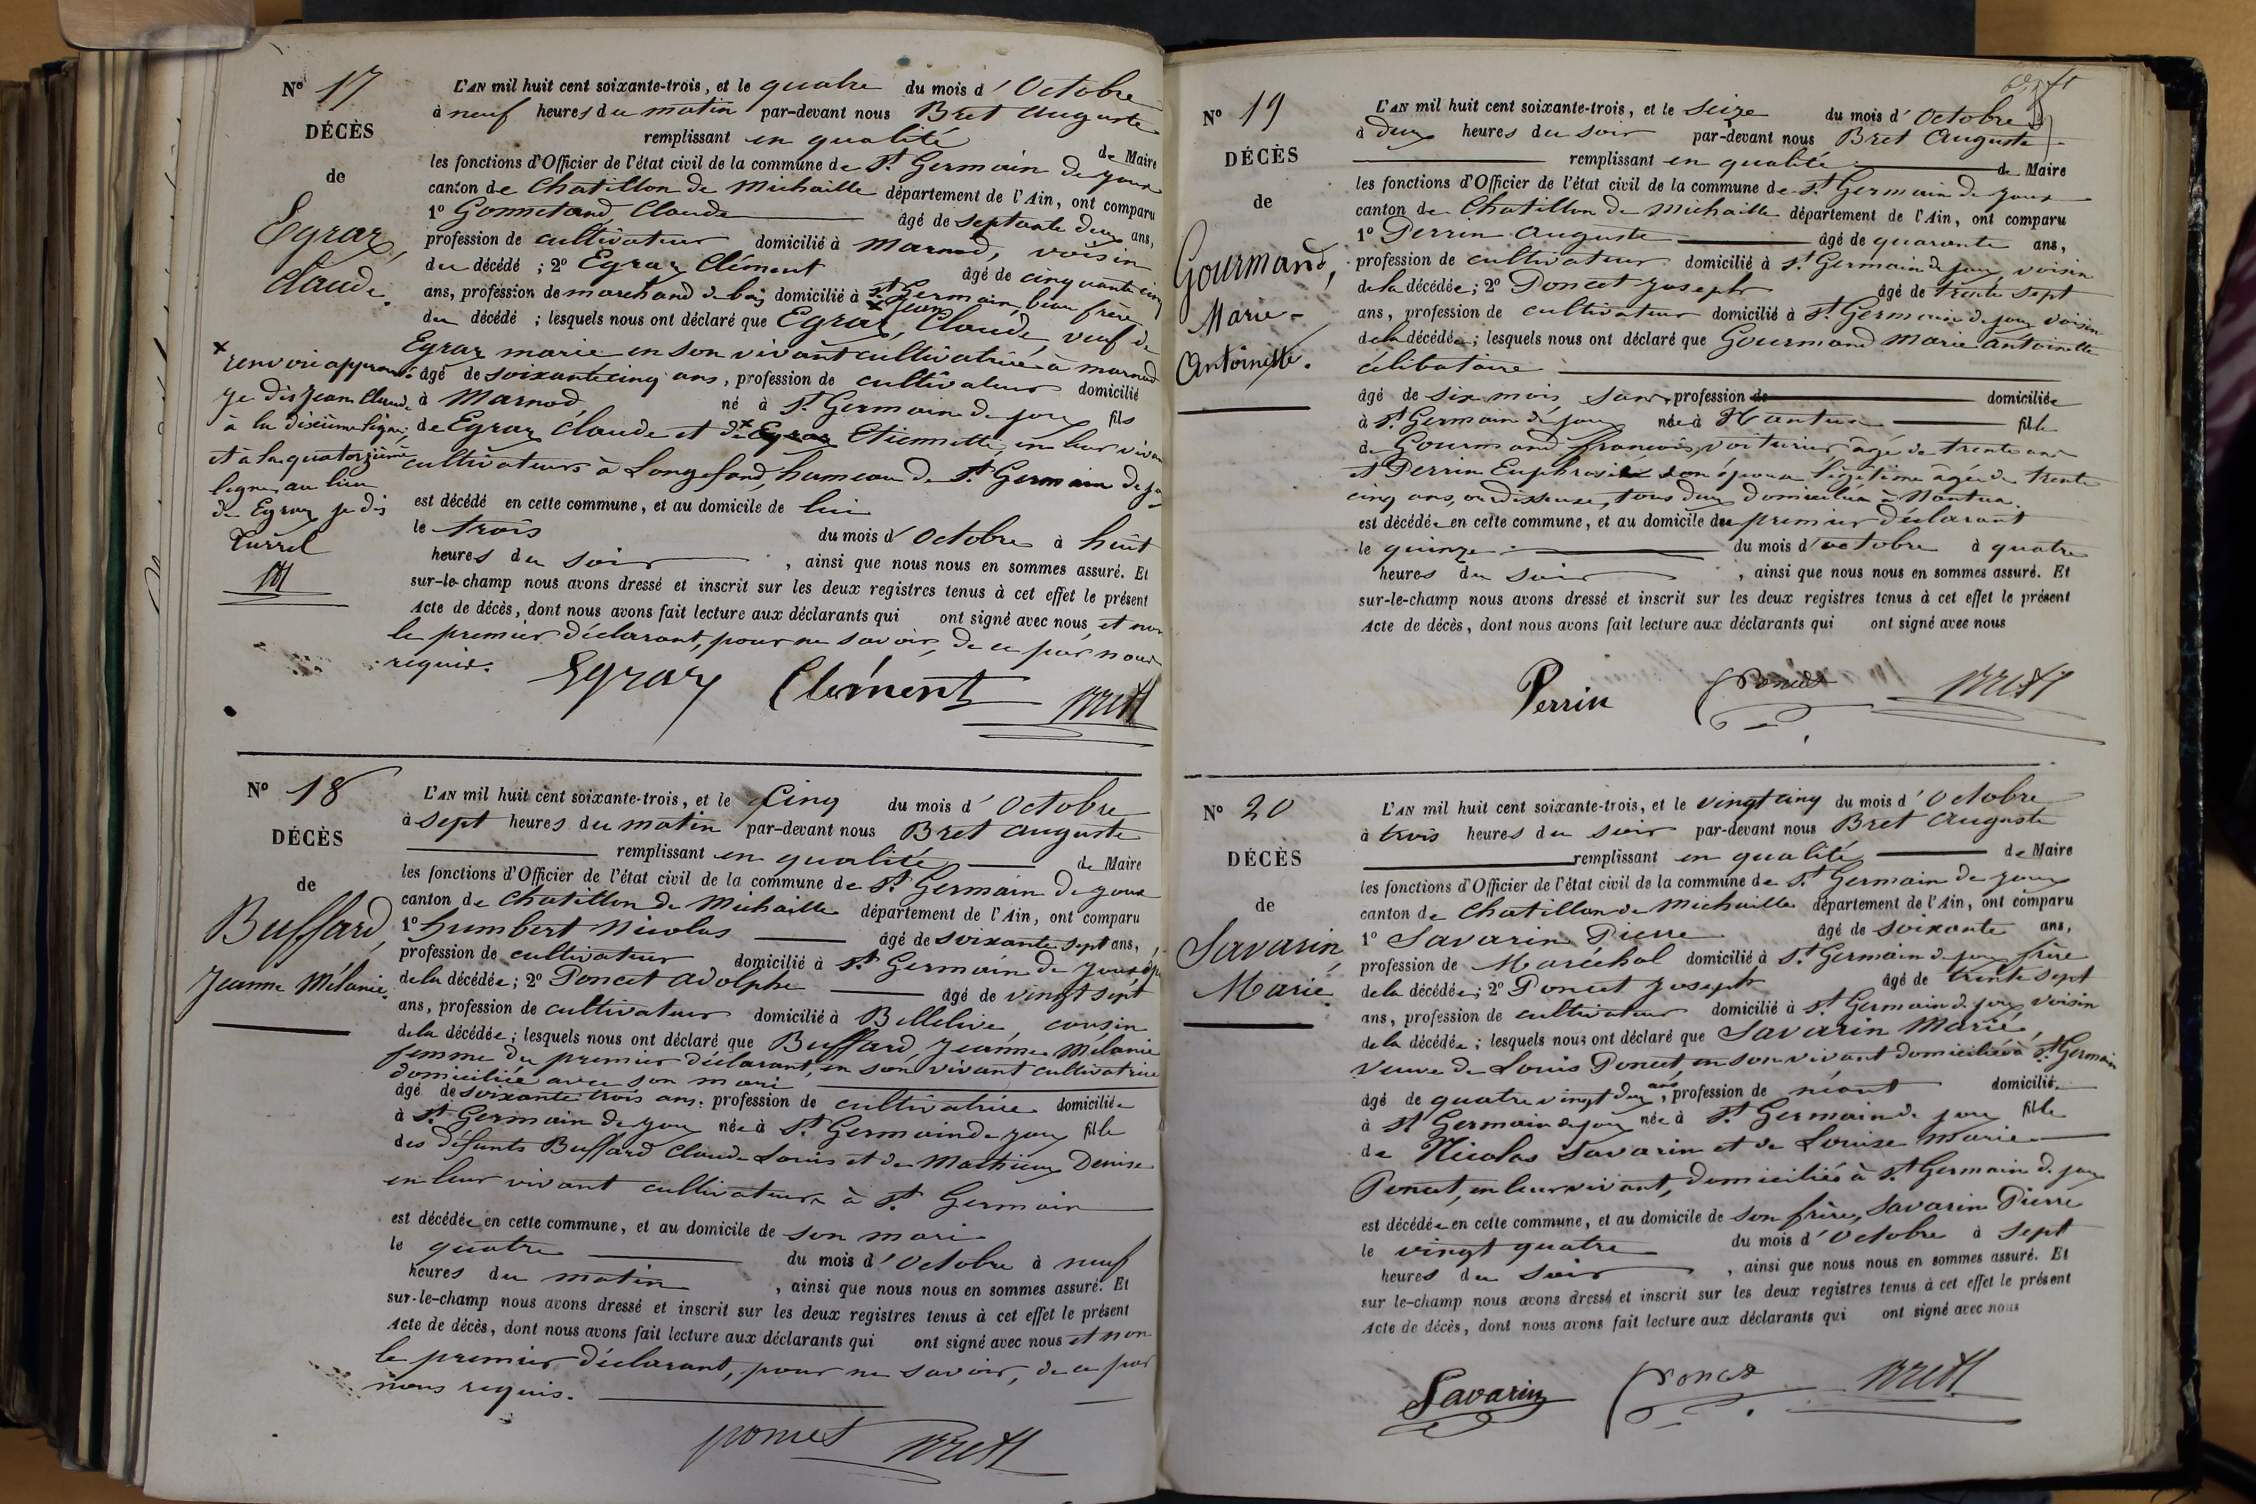 N° 17
DÉCÈS
de
Egraz,
Claude.
L'AN mil huit cent soixante-trois, et le quatre du mois d'Octobre
à neuf heures du matin par-devant nous Bret Auguste
remplissant en qualité de Maire
les fonctions d'Officier de l'état civil de la commune de St Germain de Joux
canton de Chatillon de Michaille département de l'Ain, ont comparu
1° Gonnetand Claude âgé de septante deux ans,
profession de cultivateur domicilié à Marnod, voisin
du décédé ; 2° Egraz Clément âgé de cinquante cinq
ans, profession de marchand de bois domicilié à St Germain, beau frère
du décédé ; lesquels nous ont déclaré que Egraz, × Jean Claude, veuf de
Egraz marie en son vivant cultivatrice à marnod
âgé de soixante cinq ans, profession de cultivateur domicilié
à Marnod né à St Germain de joux fils
de Egraz Claude et de × Egraz Etiennette, en leur vivant
cultivateurs à Longefand, hameau de St Germain de joux
est décédé en cette commune, et au domicile de lui
le trois du mois d'Octobre à huit
heures du soir, ainsi que nous nous en sommes assuré. Et
sur-le-champ nous avons dressé et inscrit sur les deux registres tenus à cet effet le présent
Acte de décès, dont nous avons fait lecture aux déclarants qui ont signé avec nous, et non
le premier déclarant, pour ne savoir, de ce par nous
requis.
× renvoi approuvé
je dis Jean Claude
à la dixième ligne,
et à la quatorzième
ligne au lieu
de Egraz je dis
Turrel
Egraz Clément Brett
N° 18
DÉCÈS
de
Buffard,
Jeanne Mélanie.
L'AN mil huit cent soixante-trois, et le Cinq du mois d'Octobre
à sept heures du matin par-devant nous Bret Auguste
remplissant en qualité de Maire
les fonctions d'Officier de l'état civil de la commune de St Germain de Joux
canton de Chatillon de Michaille département de l'Ain, ont comparu
1° humbert Nicolas âgé de soixante sept ans,
profession de cultivateur domicilié à St Germain de Joux
de la décédée ; 2° Poncet Adolphe âgé de vingt sept
ans, profession de cultivateur domicilié à Bellelive, cousin
de la décédée ; lesquels nous ont déclaré que Buffard, Jeanne Mélanie
femme du premier déclarant, en son vivant cultivatrice
domiciliée avec son mari
âgé de soixante trois ans. profession de cultivatrice domiciliée
à St Germain de joux née à St Germain de joux fille
des défunts Buffard Claude Louis et de Mathieu Denise
en leur vivant cultivateurs à St Germain
est décédée en cette commune, et au domicile de son mari
le quatre du mois d'Octobre à neuf
heures du matin, ainsi que nous nous en sommes assuré. Et
sur-le-champ nous avons dressé et inscrit sur les deux registres tenus à cet effet le présent
Acte de décès, dont nous avons fait lecture aux déclarants qui ont signé avec nous et non
le premier déclarant, pour ne savoir, de ce par
nous requis.
poncet Brett
N° 19
DÉCÈS
de
Gourmand,
Marie-
Antoinette.
L'AN mil huit cent soixante-trois, et le seize du mois d'Octobre
à deux heures du soir par-devant nous Bret Auguste
remplissant en qualité de Maire
les fonctions d'Officier de l'état civil de la commune de St Germain de joux
canton de Chatillon de Michaille département de l'Ain, ont comparu
1° Perrin Auguste âgé de quarante ans,
profession de cultivateur domicilié à St Germain de joux, voisin
de la décédée ; 2° Poncet Joseph âgé de trente sept
ans, profession de cultivateur domicilié à St Germain de joux voisin
de la décédée ; lesquels nous ont déclaré que Gourmand Marie Antoinette
célibataire
âgé de six mois, sans profession de domiciliée
à St Germain de joux née à Nantua fille
de Gourmand françois, voiturier, âgé de trente ans
et Perrin Euphrosie son épouse légitime âgée de trente
cinq ans, ourdisseuse, tous deux domiciliés à Nantua
est décédée en cette commune, et au domicile du premier déclarant
le quinze du mois d'octobre à quatre
heures du soir, ainsi que nous nous en sommes assuré. Et
sur-le-champ nous avons dressé et inscrit sur les deux registres tenus à cet effet le présent
Acte de décès, dont nous avons fait lecture aux déclarants qui ont signé avec nous
Perrin Poncet Brett
N° 20
DÉCÈS
de
Savarin,
Marie.
L'AN mil huit cent soixante-trois, et le vingt cinq du mois d'Octobre
à trois heures du soir par-devant nous Bret Auguste
remplissant en qualité de Maire
les fonctions d'Officier de l'état civil de la commune de St Germain de joux
canton de Chatillon de Michaille département de l'Ain, ont comparu
1° Savarin Pierre âgé de soixante ans,
profession de Maréchal domicilié à St Germain de joux frère
de la décédée ; 2° Poncet Joseph âgé de trente sept
ans, profession de cultivateur domicilié à St Germain de joux voisin
de la décédée ; lesquels nous ont déclaré que Savarin Marie,
veuve de Louis Poncet, en son vivant domicilié à St Germain
âgé de quatre vingt deux ans, profession de néant domiciliée
à St Germain de joux née à St Germain de joux fille
de Nicolas Savarin et de Louise Marie
Poncet, en leur vivant, domiciliés à St Germain de joux
est décédée en cette commune, et au domicile de son frère, Savarin Pierre
le vingt quatre du mois d'Octobre à sept
heures du soir, ainsi que nous nous en sommes assuré. Et
sur le-champ nous avons dressé et inscrit sur les deux registres tenus à cet effet le présent
Acte de décès, dont nous avons fait lecture aux déclarants qui ont signé avec nous
Savarin Poncet Brett